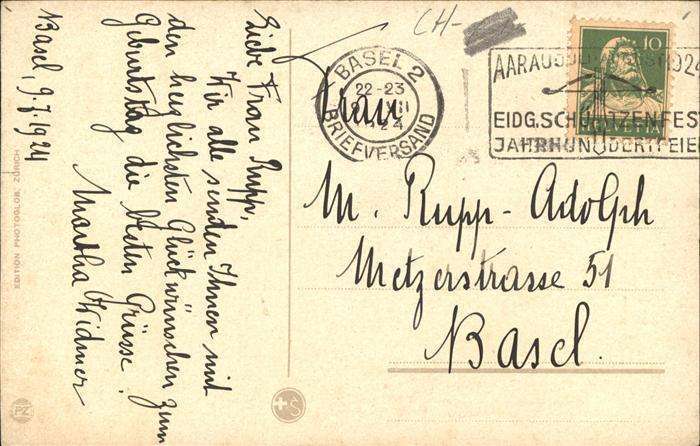 Basel, 9.7.1924
Liebe Frau Rupp,
Wir alle senden Ihnen mit
den herzlichsten Glückwünschen zum
Geburtstag die besten Grüsse!
Martha Widmer
EDITION PHOTOGLOB, ZÜRICH
PZ
CH-
BASEL 2
22-23
VII
24
BRIEFVERSAND
AARAU 1924
EIDG. SCHÜTZENFEST
JAHRHUNDERTFEIER
10
HELVETIA
Frau
M. Rupp-Adolph
Metzerstrasse 51
Basel.